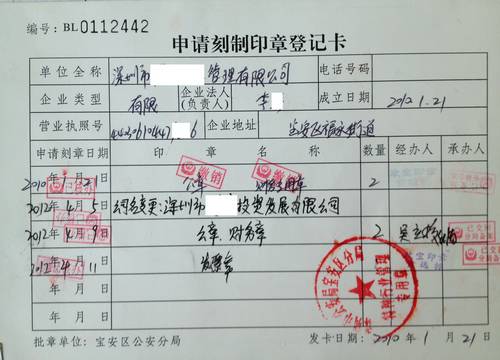 编号: BL0112442
申请刻制印章登记卡
单位全称 深圳市 管理有限公司 电话号码
企业类型 有限 企业法人(负责人) 李 成立日期 2010.1.21
营业执照号 企业地址 宝安区福永街道
申请刻章日期 印章名称 数量 经办人 承办人
2010年1月21 公章 财务章 2
缴销 缴销
2012年4月5 公司名变更:深圳市 投资发展有限公司
2012年4月9 公章、财务章 2
2012年4月11 发票章
年 月
年 月
宝安区分局
特种行业管理
专用章
批章单位: 宝安区公安分局 发卡日期 2010年1月21日